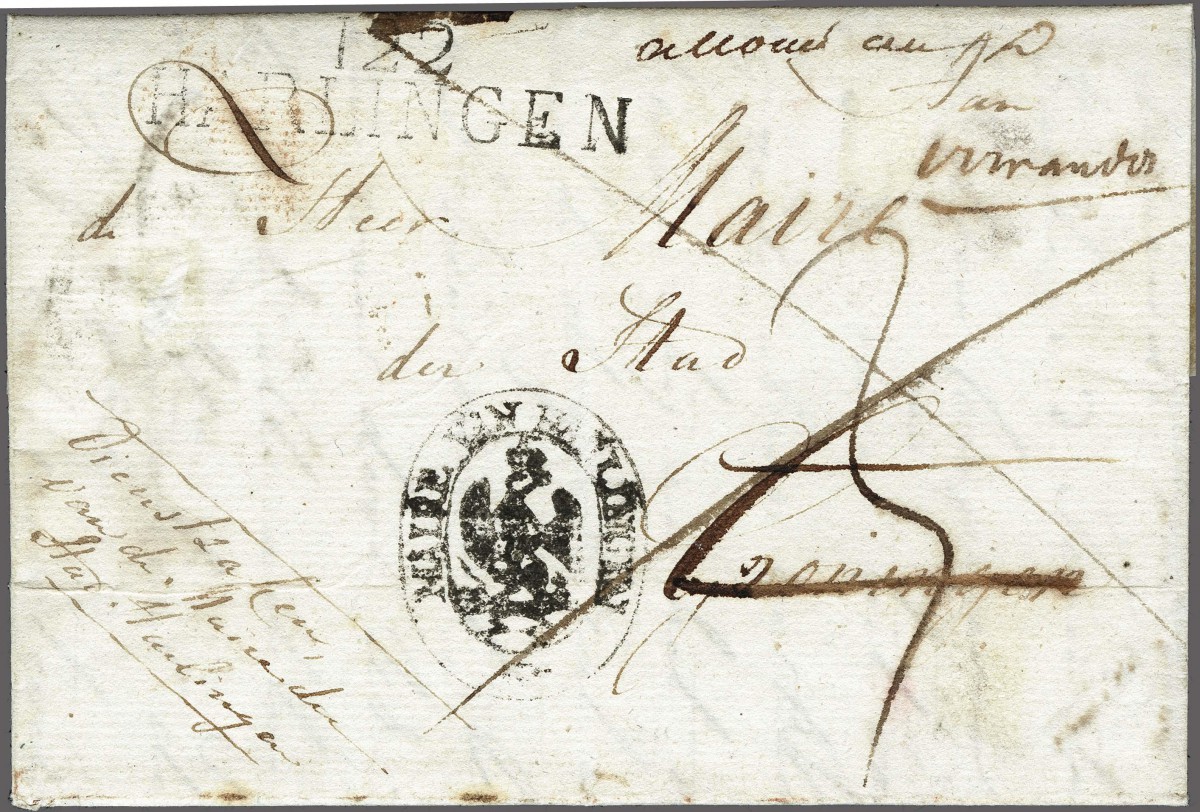 122
HARLINGEN
aan
de Heer Maire
der Stad
Groningen
MAIRE VAN HARLINGEN
Dienstzaken,
van de Maire der
Stad Harlingen